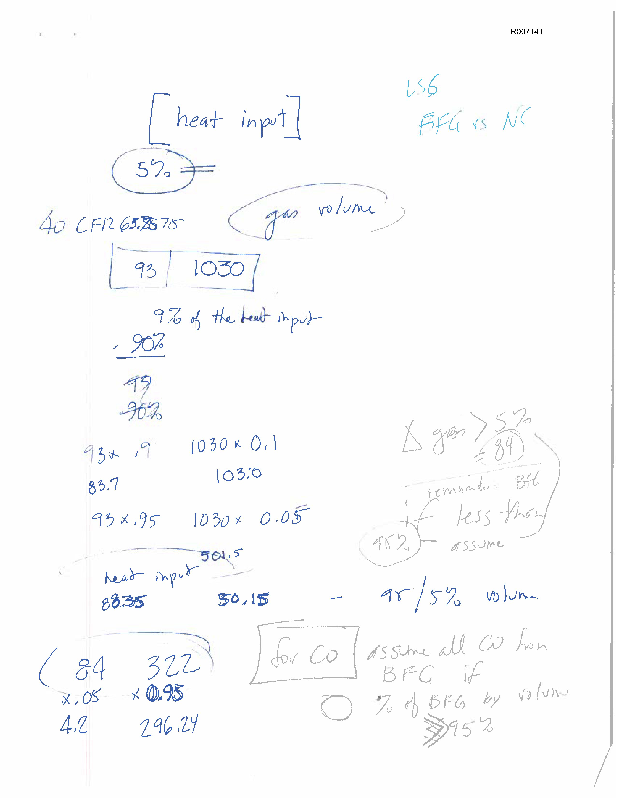 R007141
US6
BFG vs NG
[heat input]
5%
40 CFR 63.7575
gas volume
93 1030
9% of the heat input
- 90%
99
90%
93 x .9 1030 x 0.1
83.7 103.0
93 x .95 1030 x 0.05
501.5
heat input
88.35 50.15 -- 95/5% volume
84 322
x .05 x 0.95
4.2 296.24
Δ gas > 5%
= 84
remainder BFG
less than
95% assume
for CO assume all CO from
BFG if
% of BFG by volume
> 95%